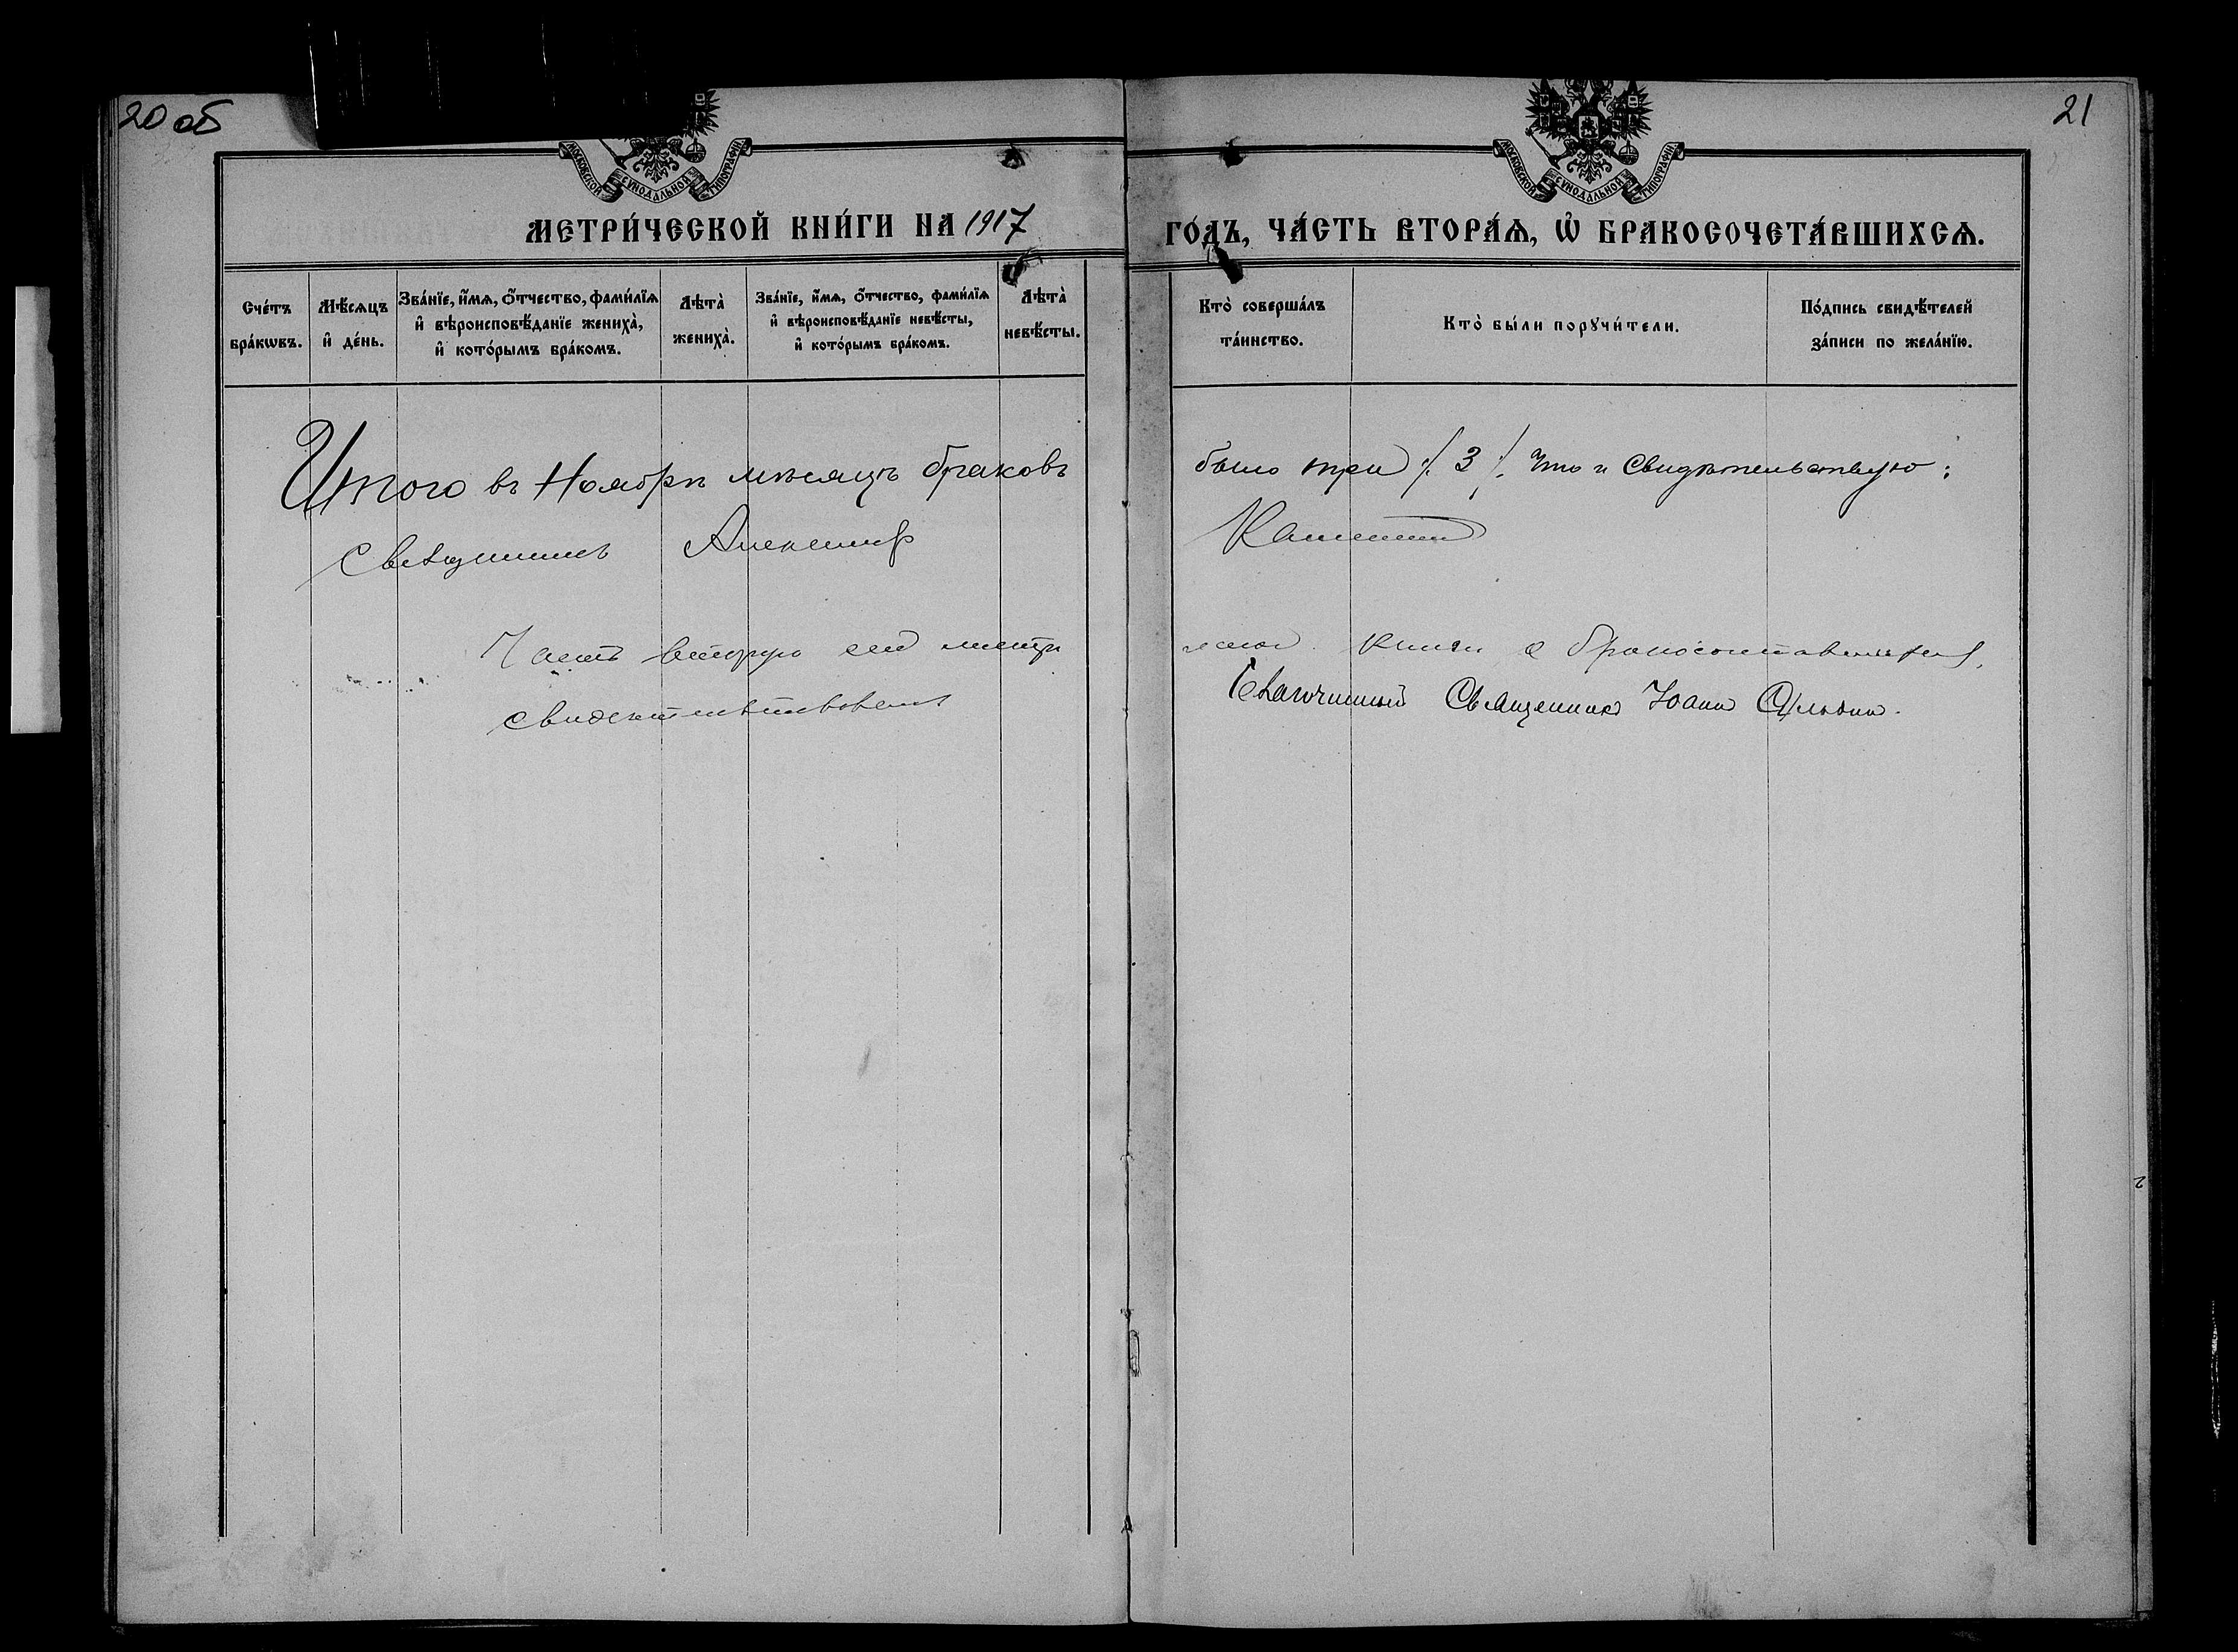 20 об
21
МОСКОВСКОЙ СѴНОДАЛЬНОЙ ТИПОГРАФІИ
МОСКОВСКОЙ СѴНОДАЛЬНОЙ ТИПОГРАФІИ
МЕТРИ́ЧЕСКОЙ КНИ́ГИ НА 1917
ГО́ДЪ, ЧА́СТЬ ВТОРА́Ѧ, Ѽ БРАКОСОЧЕТА́ВШИХСѦ.
Сче́тъ
бра́кѡвъ.
Мѣ́сѧцъ
и҆ де́нь.
Зва́нїе, и҆́мѧ, ѻ҆́тчество, фами́лїѧ
и҆ вѣроисповѣ́данїе жениха̀,
и҆ кото́рымъ бра́комъ.
Лѣта̀
жениха̀.
Зва́нїе, и҆́мѧ, ѻ҆́тчество, фами́лїѧ
и҆ вѣроисповѣ́данїе невѣ́сты,
и҆ кото́рымъ бра́комъ.
Лѣта̀
невѣ́сты.
Кто̀ соверша́лъ
та́инство.
Кто̀ бы́ли порꙋчи́тели.
По́дпись свидѣ́телей
за́писи по жела́нїю.
Итого въ Ноябрѣ мѣсяцѣ браковъ
было три /. 3 /. Что и свидѣтельствую:
Священникъ Александр
Часть вторую сей метри
ческой книги о бракосочетавшихся,
свидетельствовалъ
Благочинный Священникъ Іоаннъ